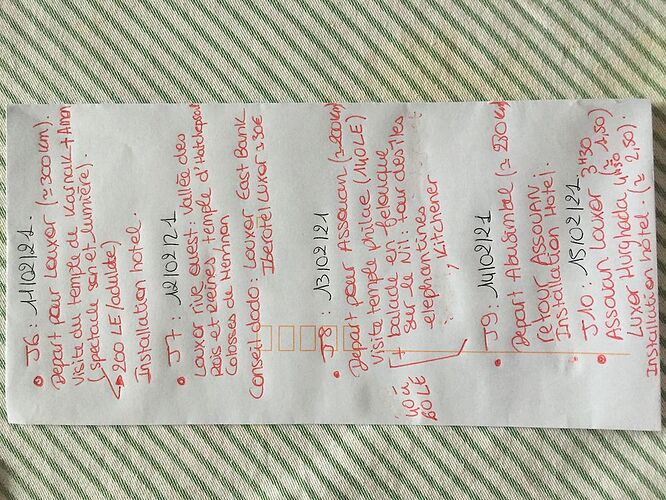 • J6 : 11/02/21.
Depart pour Louxor (≃300 km).
visite du temple de Karnak + Amon
(spectacle son et lumière).
→ 200 LE/adulte)
Installation hôtel.
• J7 : 12/02/21
Louxor rive ouest : vallée des
Rois et reines, temple d'Hatchepsout
Colosses de Memnon
Conseil dodo : Louxor East Bank
Iberotel Luxor ≃30€
J8 : 13/02/21
• Depart pour Assouan (≃200km)
Visite temple philae (140LE)
+ balade en felouque
sur le Nil : tour des îles
elephantines
, Kitchener
40 à
60 LE
• J9 : 14/02/21
Depart AbuSimbel (≃ 230km)
retour Assouan.
Installation Hôtel.
• J10 : 15/02/21
Assouan Louxor 3H30 1,50)
Luxor Hurghada 4H30 (≃ 2,50).
Installation hôtel.